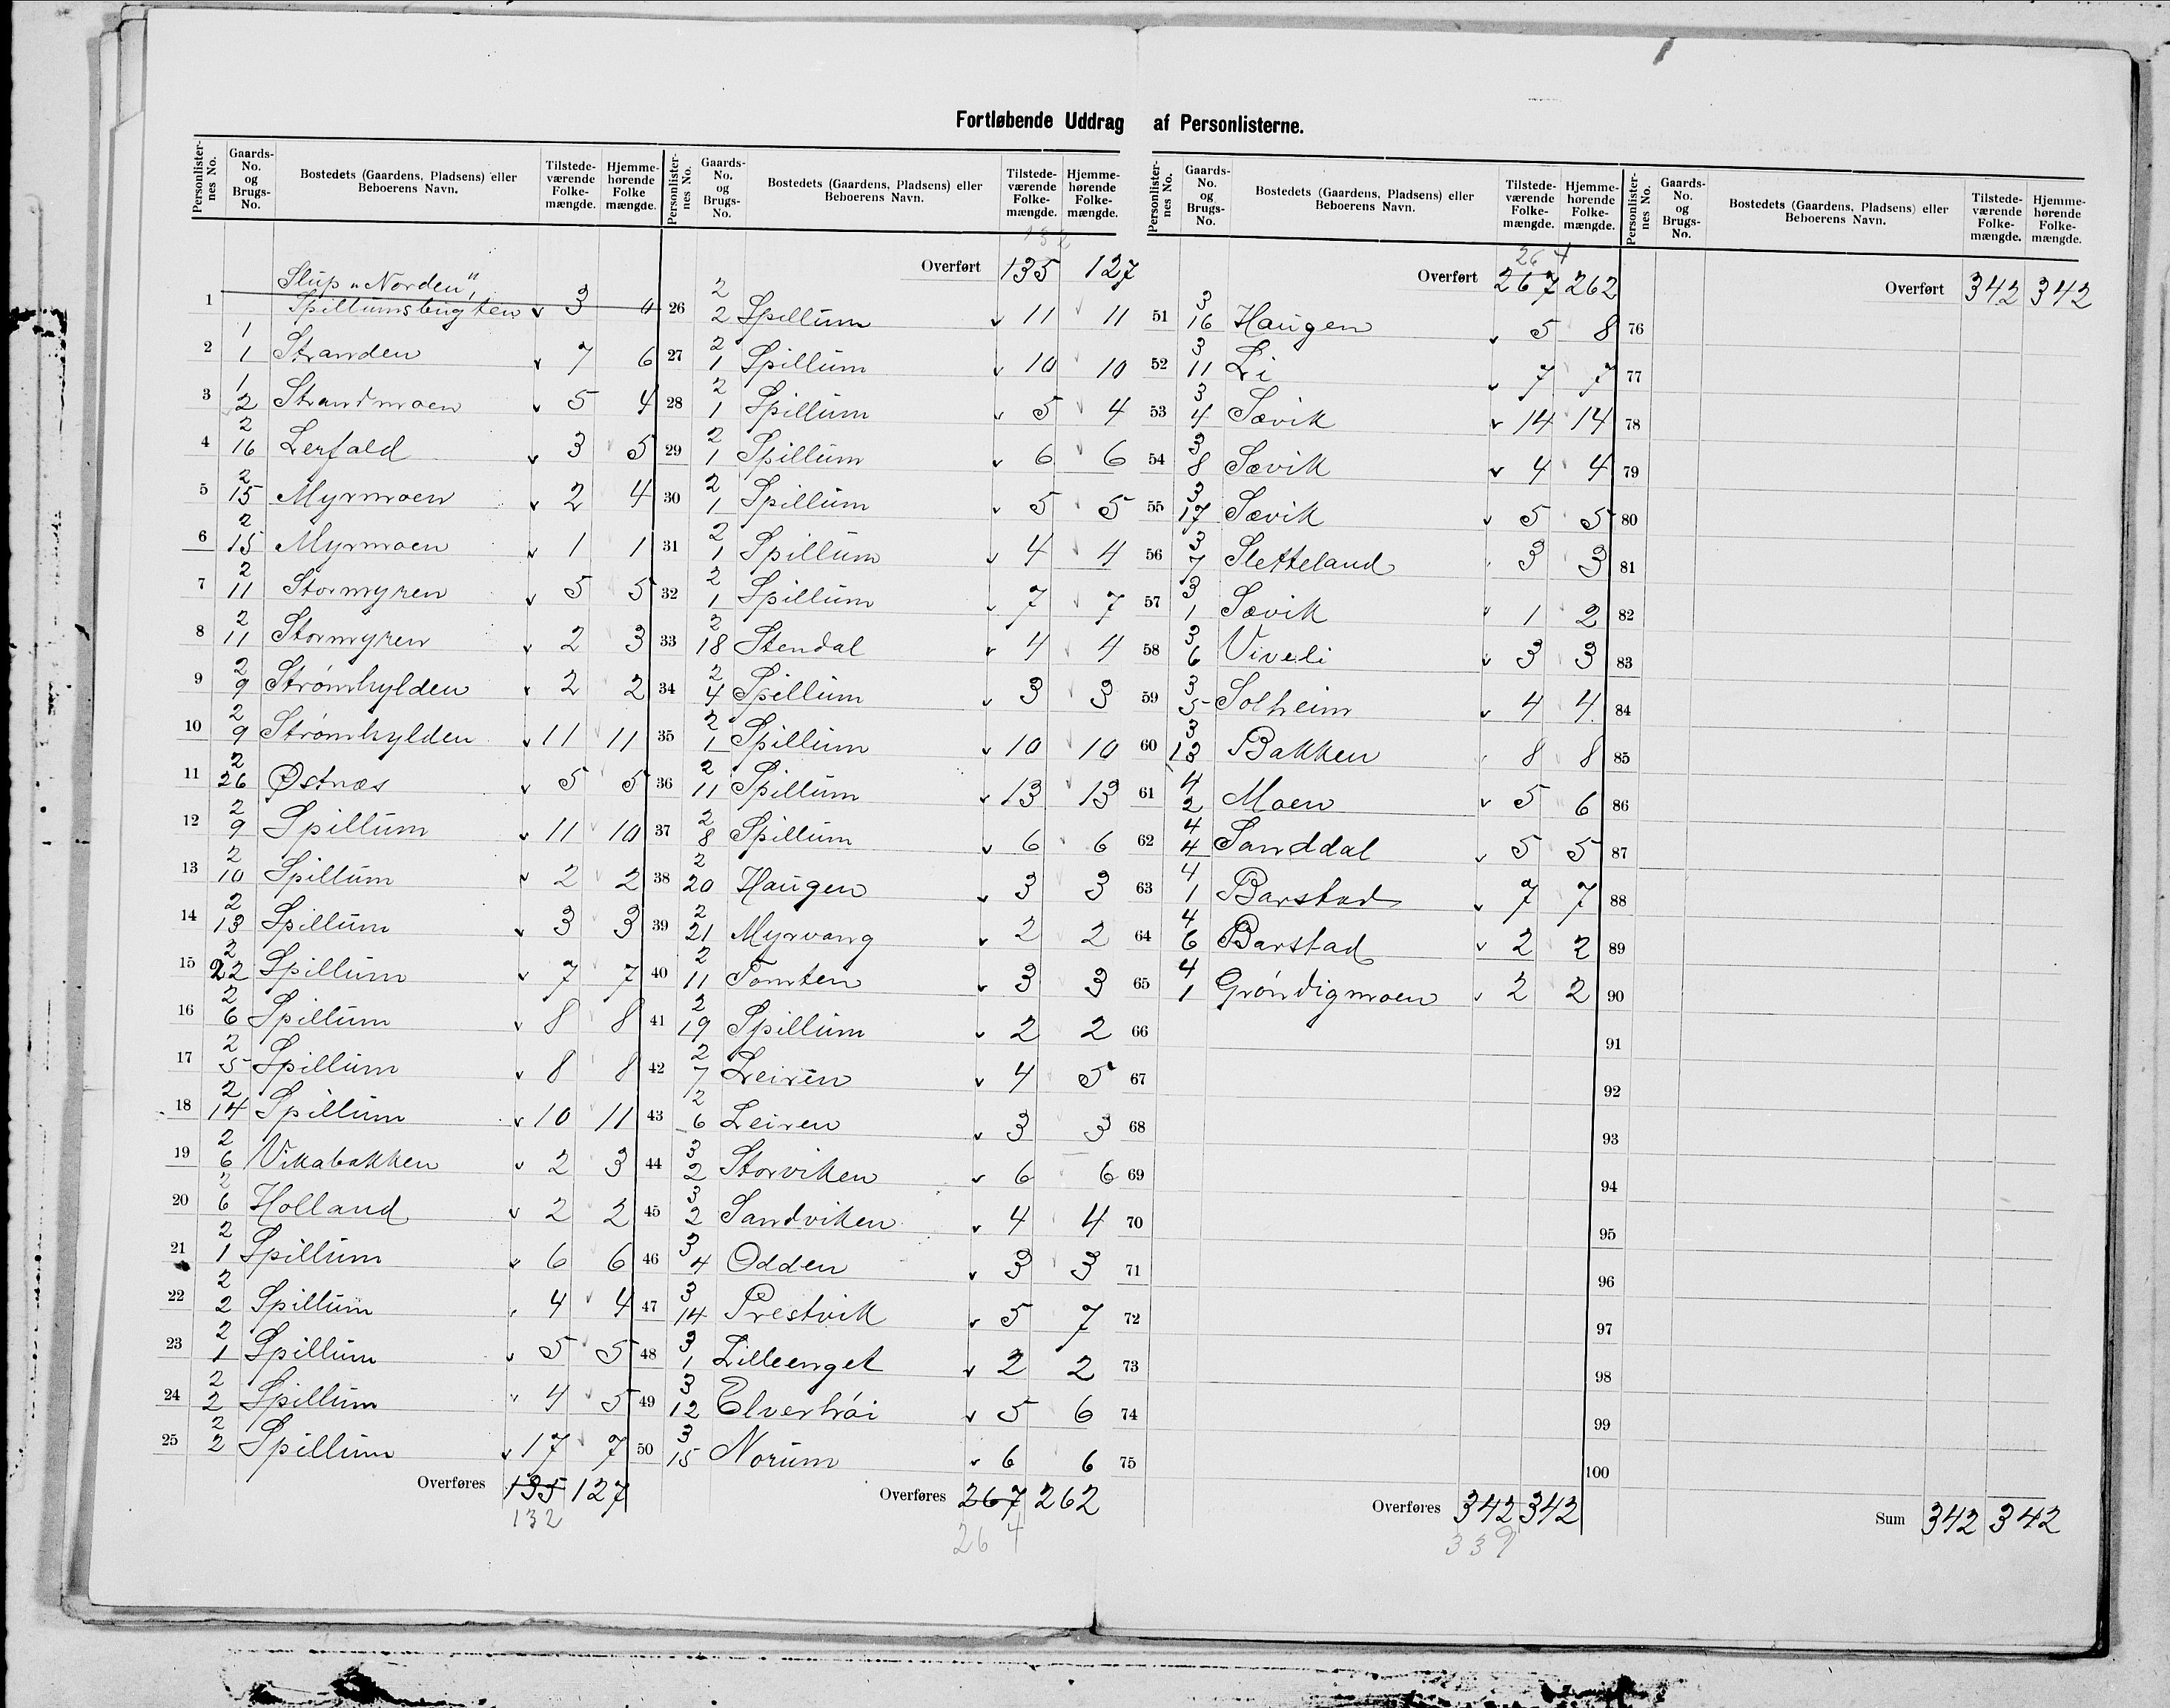 Fortløbende Uddrag af Personlisterne.
Personlisternes No. Gaards-No. og Brugs-No. Bostedets (Gaardens, Pladsens) eller Beboerens Navn. Tilstedeværende Folkemængde. Hjemmehørende Folkemængde.
Slup „Norden",
1 Spillumsbugten v 3 4
2 1/1 Stranden v 7 6
3 1/2 Strandmoen v 5 4
4 2/16 Lerfald v 3 5
5 2/15 Myrmoen v 2 4
6 2/15 Myrmoen v 1 1
7 2/11 Stormyren v 5 5
8 2/11 Stormyren v 2 3
9 2/9 Strømhylden v 2 2
10 2/9 Strømhylden v 11 11
11 2/26 Østnæs v 5 5
12 2/9 Spillum v 11 10
13 2/10 Spillum v 2 2
14 2/13 Spillum v 3 3
15 2/22 Spillum v 7 7
16 2/6 Spillum v 8 8
17 2/5 Spillum v 8 8
18 2/14 Spillum v 10 11
19 2/6 Vikabakken v 2 3
20 2/6 Holland v 2 2
21 2/1 Spillum v 6 6
22 2/2 Spillum v 4 4
23 2/1 Spillum v 5 5
24 2/2 Spillum v 4 5
25 2/2 Spillum v 17 7
Overføres 135 127
132
Personlisternes No. Gaards-No. og Brugs-No. Bostedets (Gaardens, Pladsens) eller Beboerens Navn. Tilstedeværende Folkemængde. Hjemmehørende Folkemængde.
132
Overført 135 127
26 2/2 Spillum v 11 11
27 2/1 Spillum v 10 10
28 2/1 Spillum v 5 4
29 2/1 Spillum v 6 6
30 2/1 Spillum v 5 5
31 2/1 Spillum v 4 4
32 2/1 Spillum v 7 7
33 2/18 Stendal v 4 4
34 2/4 Spillum v 3 3
35 2/1 Spillum v 10 10
36 2/11 Spillum v 13 13
37 2/8 Spillum v 6 6
38 2/20 Haugen v 3 3
39 2/21 Myrvang v 2 2
40 2/11 Tomten v 3 3
41 2/19 Spillum v 2 2
42 2/7 Leiren v 4 5
43 2/6 Leiren v 3 3
44 3/2 Storviken v 6 6
45 3/2 Sandviken v 4 4
46 3/4 Odden v 3 3
47 3/14 Prestvik v 5 7
48 3/1 Lilleenget v 2 2
49 3/12 Elverhøi v 5 6
50 3/15 Norum v 6 6
Overføres 267 262
264
Personlisternes No. Gaards-No. og Brugs-No. Bostedets (Gaardens, Pladsens) eller Beboerens Navn. Tilstedeværende Folkemængde. Hjemmehørende Folkemængde.
264
Overført 267 262
51 3/16 Haugen v 5 8
52 3/11 Li v 7 7
53 3/4 Sævik v 14 14
54 3/8 Sævik v 4 4
55 3/17 Sævik v 5 5
56 3/7 Sletteland v 3 3
57 3/1 Sævik v 1 2
58 3/6 Viveli v 3 3
59 3/5 Solheim v 4 4
60 3/13 Bakken v 8 8
61 4/2 Moen v 5 6
62 4/4 Sanddal v 5 5
63 4/1 Barstad v 7 7
64 4/6 Barstad v 2 2
65 4/1 Grøndigmoen v 2 2
66
67
68
69
70
71
72
73
74
75
Overføres 342 342
339
Personlisternes No. Gaards-No. og Brugs-No. Bostedets (Gaardens, Pladsens) eller Beboerens Navn. Tilstedeværende Folkemængde. Hjemmehørende Folkemængde.
Overført 342 342
76
77
78
79
80
81
82
83
84
85
86
87
88
89
90
91
92
93
94
95
96
97
98
99
100
Sum 342 342